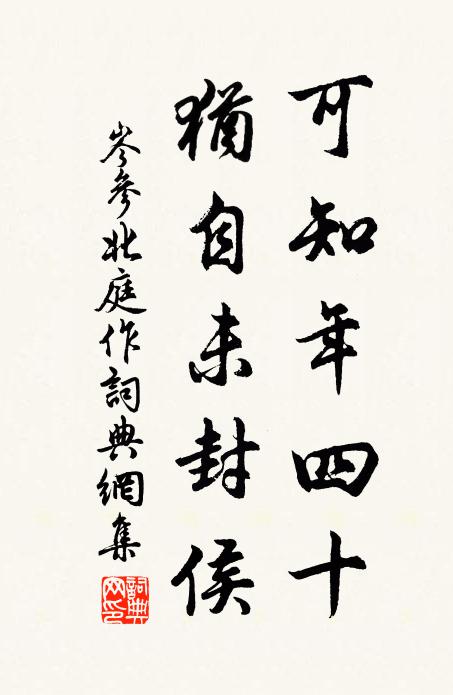 可知年四十
猶自未封侯
岑參北庭作詞典網集
詞典網印